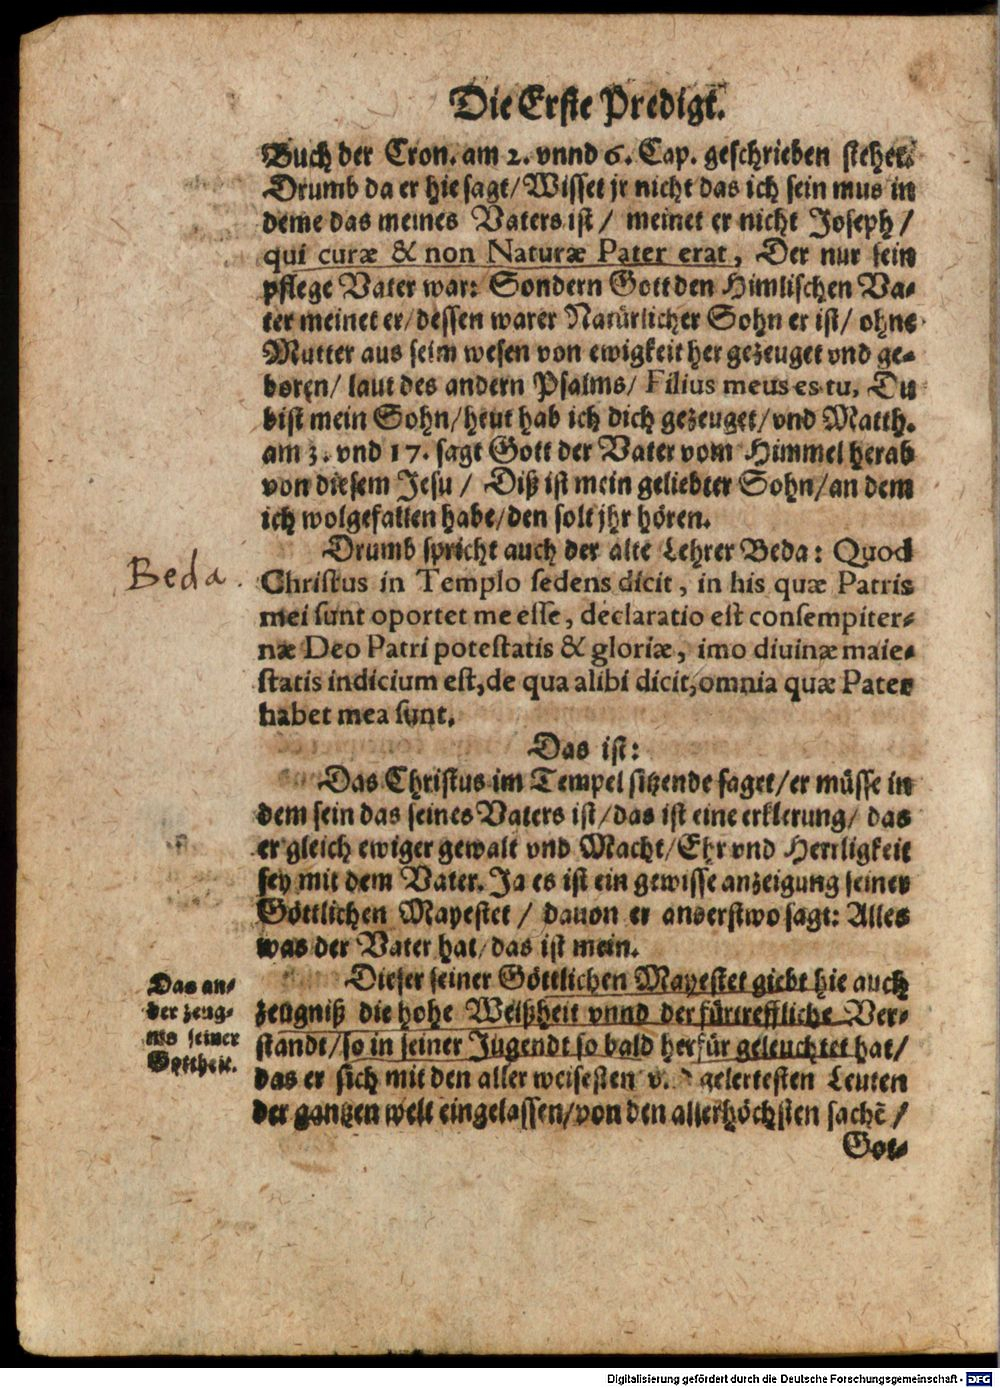 Die Erste Predigt.
Buch der Cron. am 2. vnnd 6. Cap. geschrieben stehet.
Drumb da er hie sagt/ Wisset jr nicht das ich sein mus in
deme das meines Vaters ist/ meinet er nicht Joseph/
qui curæ & non Naturæ Pater erat, Der nur sein
pflege Vater war: Sondern Gott den Himlischen Va-
ter meinet er/ dessen warer Natürlicher Sohn er ist/ ohne
Mutter aus seim wesen von ewigkeit her gezeuget vnd ge-
boren/ laut des andern Psalms/ Filius meus es tu, Du
bist mein Sohn/ heut hab ich dich gezeuget/ vnd Matth.
am 3. vnd 17. sagt Gott der Vater vom Himmel herab
von diesem Jesu/ Diß ist mein geliebter Sohn/ an dem
ich wolgefallen habe/ den solt jhr hören.
Drumb spricht auch der alte Lehrer Beda: Quod
Beda.
Christus in Templo sedens dicit, in his quæ Patris
mei sunt oportet me esse, declaratio est consempiter-
næ Deo Patri potestatis & gloriæ, imo diuinæ maie-
statis indicium est, de qua alibi dicit, omnia quæ Pater
habet mea sunt.
Das ist:
Das Christus im Tempel sitzende saget/ er müsse in
dem sein das seines Vaters ist/ das ist eine erklerung/ das
er gleich ewiger gewalt vnd Macht/ Ehr vnd Herrligkeit
sey mit dem Vater. Ja es ist ein gewisse anzeigung seiner
Göttlichen Mayestet/ dauon er anderstwo sagt: Alles
was der Vater hat/ das ist mein.
Dieser seiner Göttlichen Mayestet giebt hie auch
zeugniß die hohe Weißheit vnnd der fürtreffliche Ver-
standt/ so in seiner Jugendt so bald herfür geleuchtet hat/
das er sich mit den aller weisesten v. gelertesten Leuten
der gantzen welt eingelassen/ von den allerhöchsten sachē/
Got-
Das an-
der zeug-
nis seiner
Gottheit.
Digitalisierung gefördert durch die Deutsche Forschungsgemeinschaft - DFG